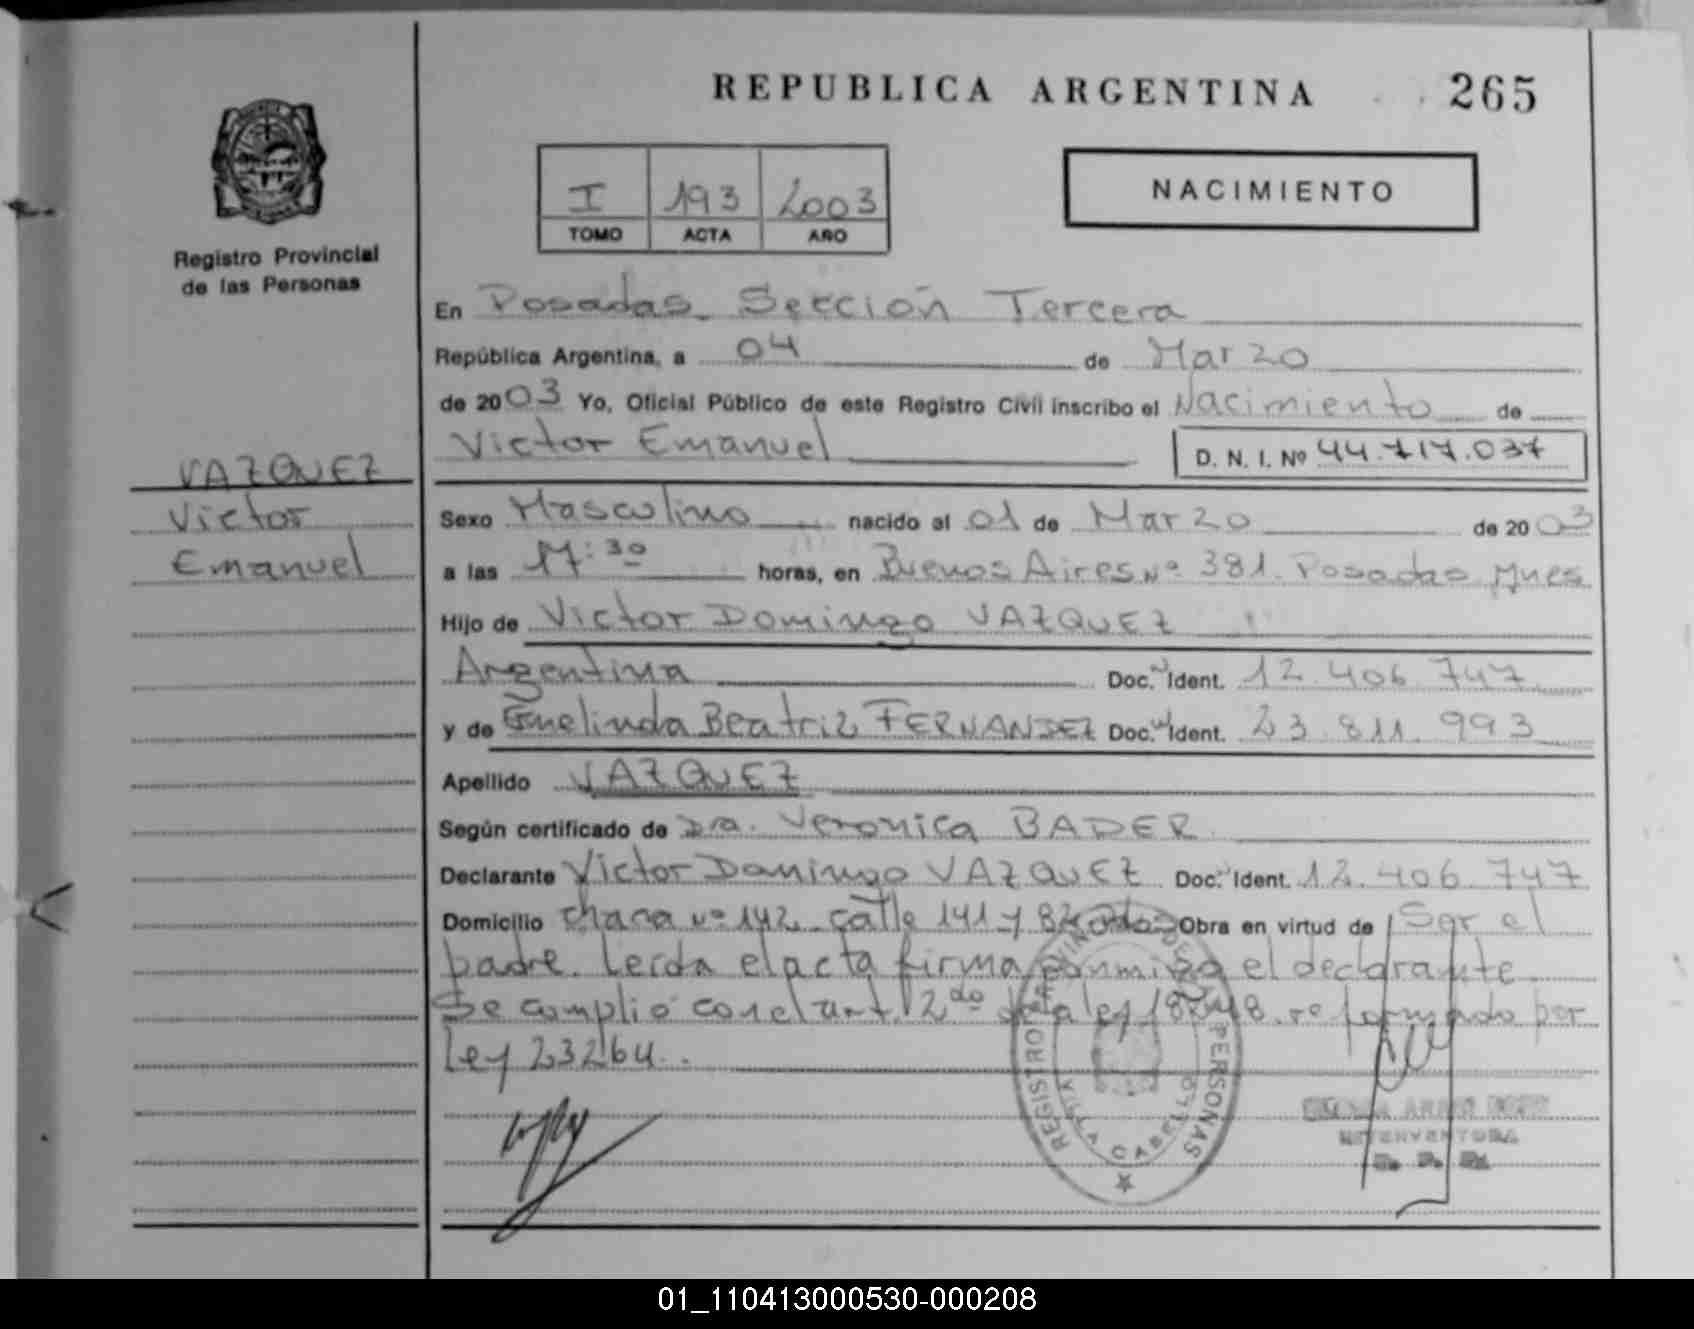 REPUBLICA ARGENTINA 265
I 193 2003
TOMO ACTA AÑO
NACIMIENTO
Registro Provincial
de las Personas
VAZQUEZ
Victor
Emanuel
En Posadas Sección Tercera
República Argentina, a 04 de Marzo
de 2003 Yo, Oficial Público de este Registro Civil inscribo el Nacimiento de
Victor Emanuel D. N. I. Nº 44.717.037
Sexo Masculino nacido el 01 de Marzo de 2003
a las 17:30 horas, en Buenos Aires Nº 381. Posadas Mnes
Hijo de Victor Domingo VAZQUEZ
Argentina Doc. Ident. 12.406.747
y de Beatriz FERNANDEZ Doc. Ident. 23.811.993
Apellido VAZQUEZ
Según certificado de Dra. Veronica BADER
Declarante Victor Domingo VAZQUEZ Doc. Ident. 12.406.747
Domicilio chacra nº 142 calle 141 y Obra en virtud de Ser el
padre. Leída el acta firma conmigo el declarante
Se cumplió con el art. 2do de la ley 18248 reformado por
Ley 23264.
REGISTRO PROVINCIAL DE LAS PERSONAS
VILLA CABELLO
INTERVENTORA
01_110413000530-000208